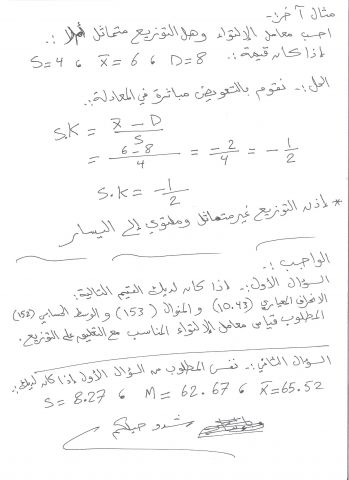 مثال آخر:-
احسب معامل الالتواء وهل التوزيع متماثل أم لا :.
إذا كانت قيمة:. D=8 ، x̄=6 ، S=4
الحل:- نقوم بالتعويض مباشرة في المعادلة:.
S.K = x̄ - D / S
= 6-8 / 4 = -2 / 4 = - 1 / 2
S.K = -1 / 2
* إذن التوزيع غير متماثل وملتوي إلى اليسار
الواجب :-
السؤال الأول:- إذا كان لديك القيم التالية:
الانحراف المعياري (10.43) و المنوال (153) و الوسط الحسابي (158)
المطلوب قياس معامل الالتواء المناسب مع التعليق على التوزيع.
السؤال الثاني:- نفس المطلوب من السؤال الأول إذا كان لديك:.
S= 8.27 ، M= 62.67 ، x̄=65.52
شدو حيلكم